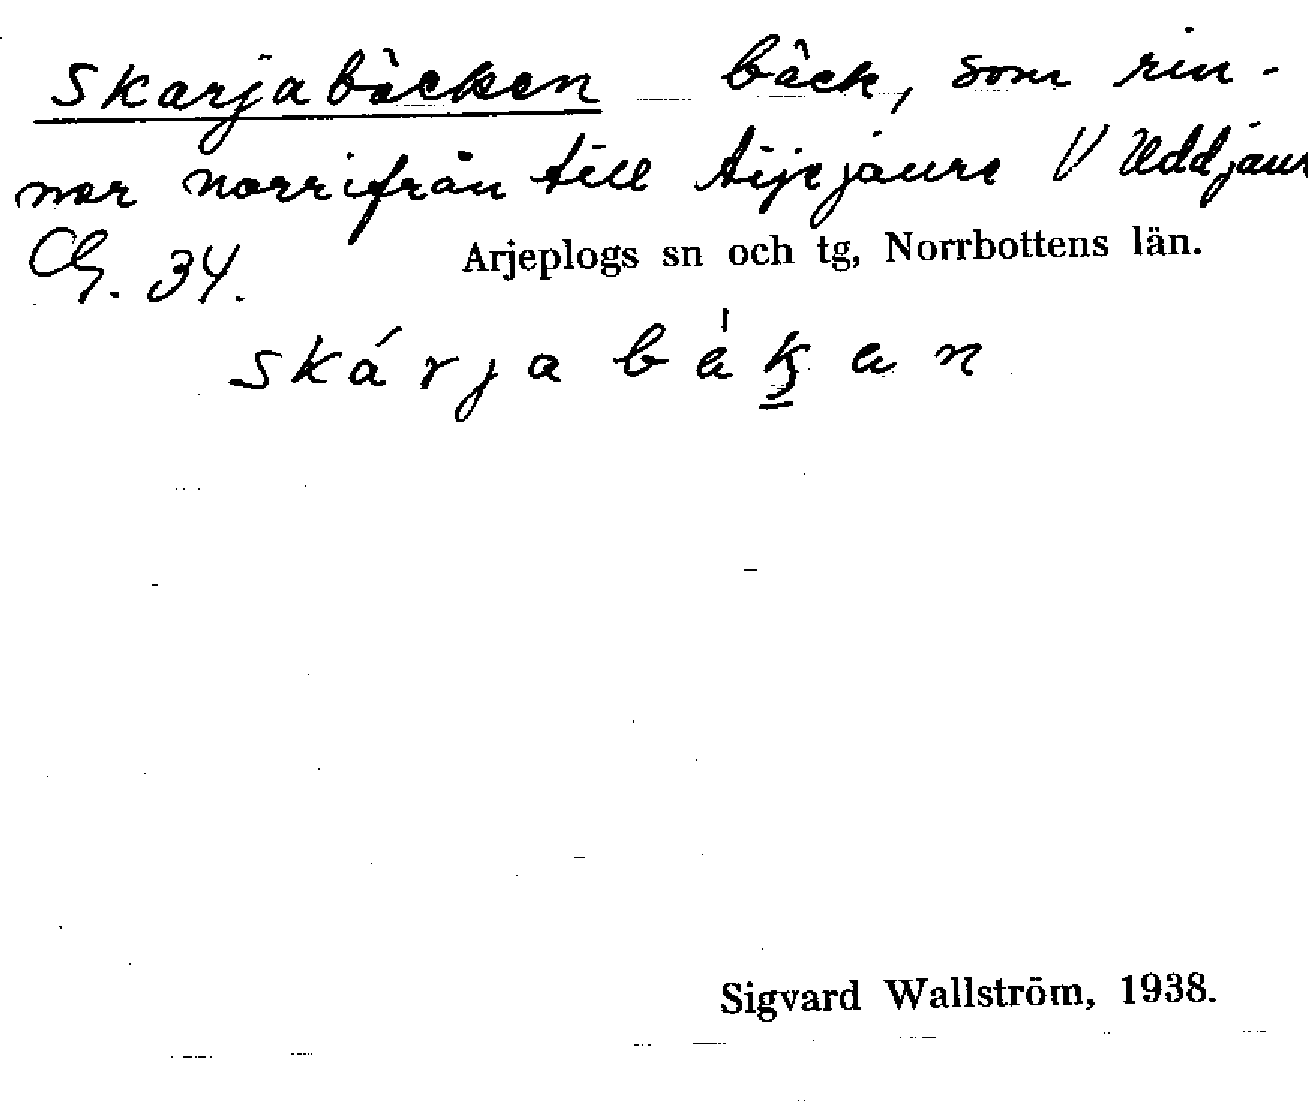 Skarjabäcken bäck, som rin-
ner norrifrån till Aijejaure V Uddjaur
34.
Arjeplogs sn och tg, Norrbottens län.
skárja bákan
Sigvard Wallström, 1938.